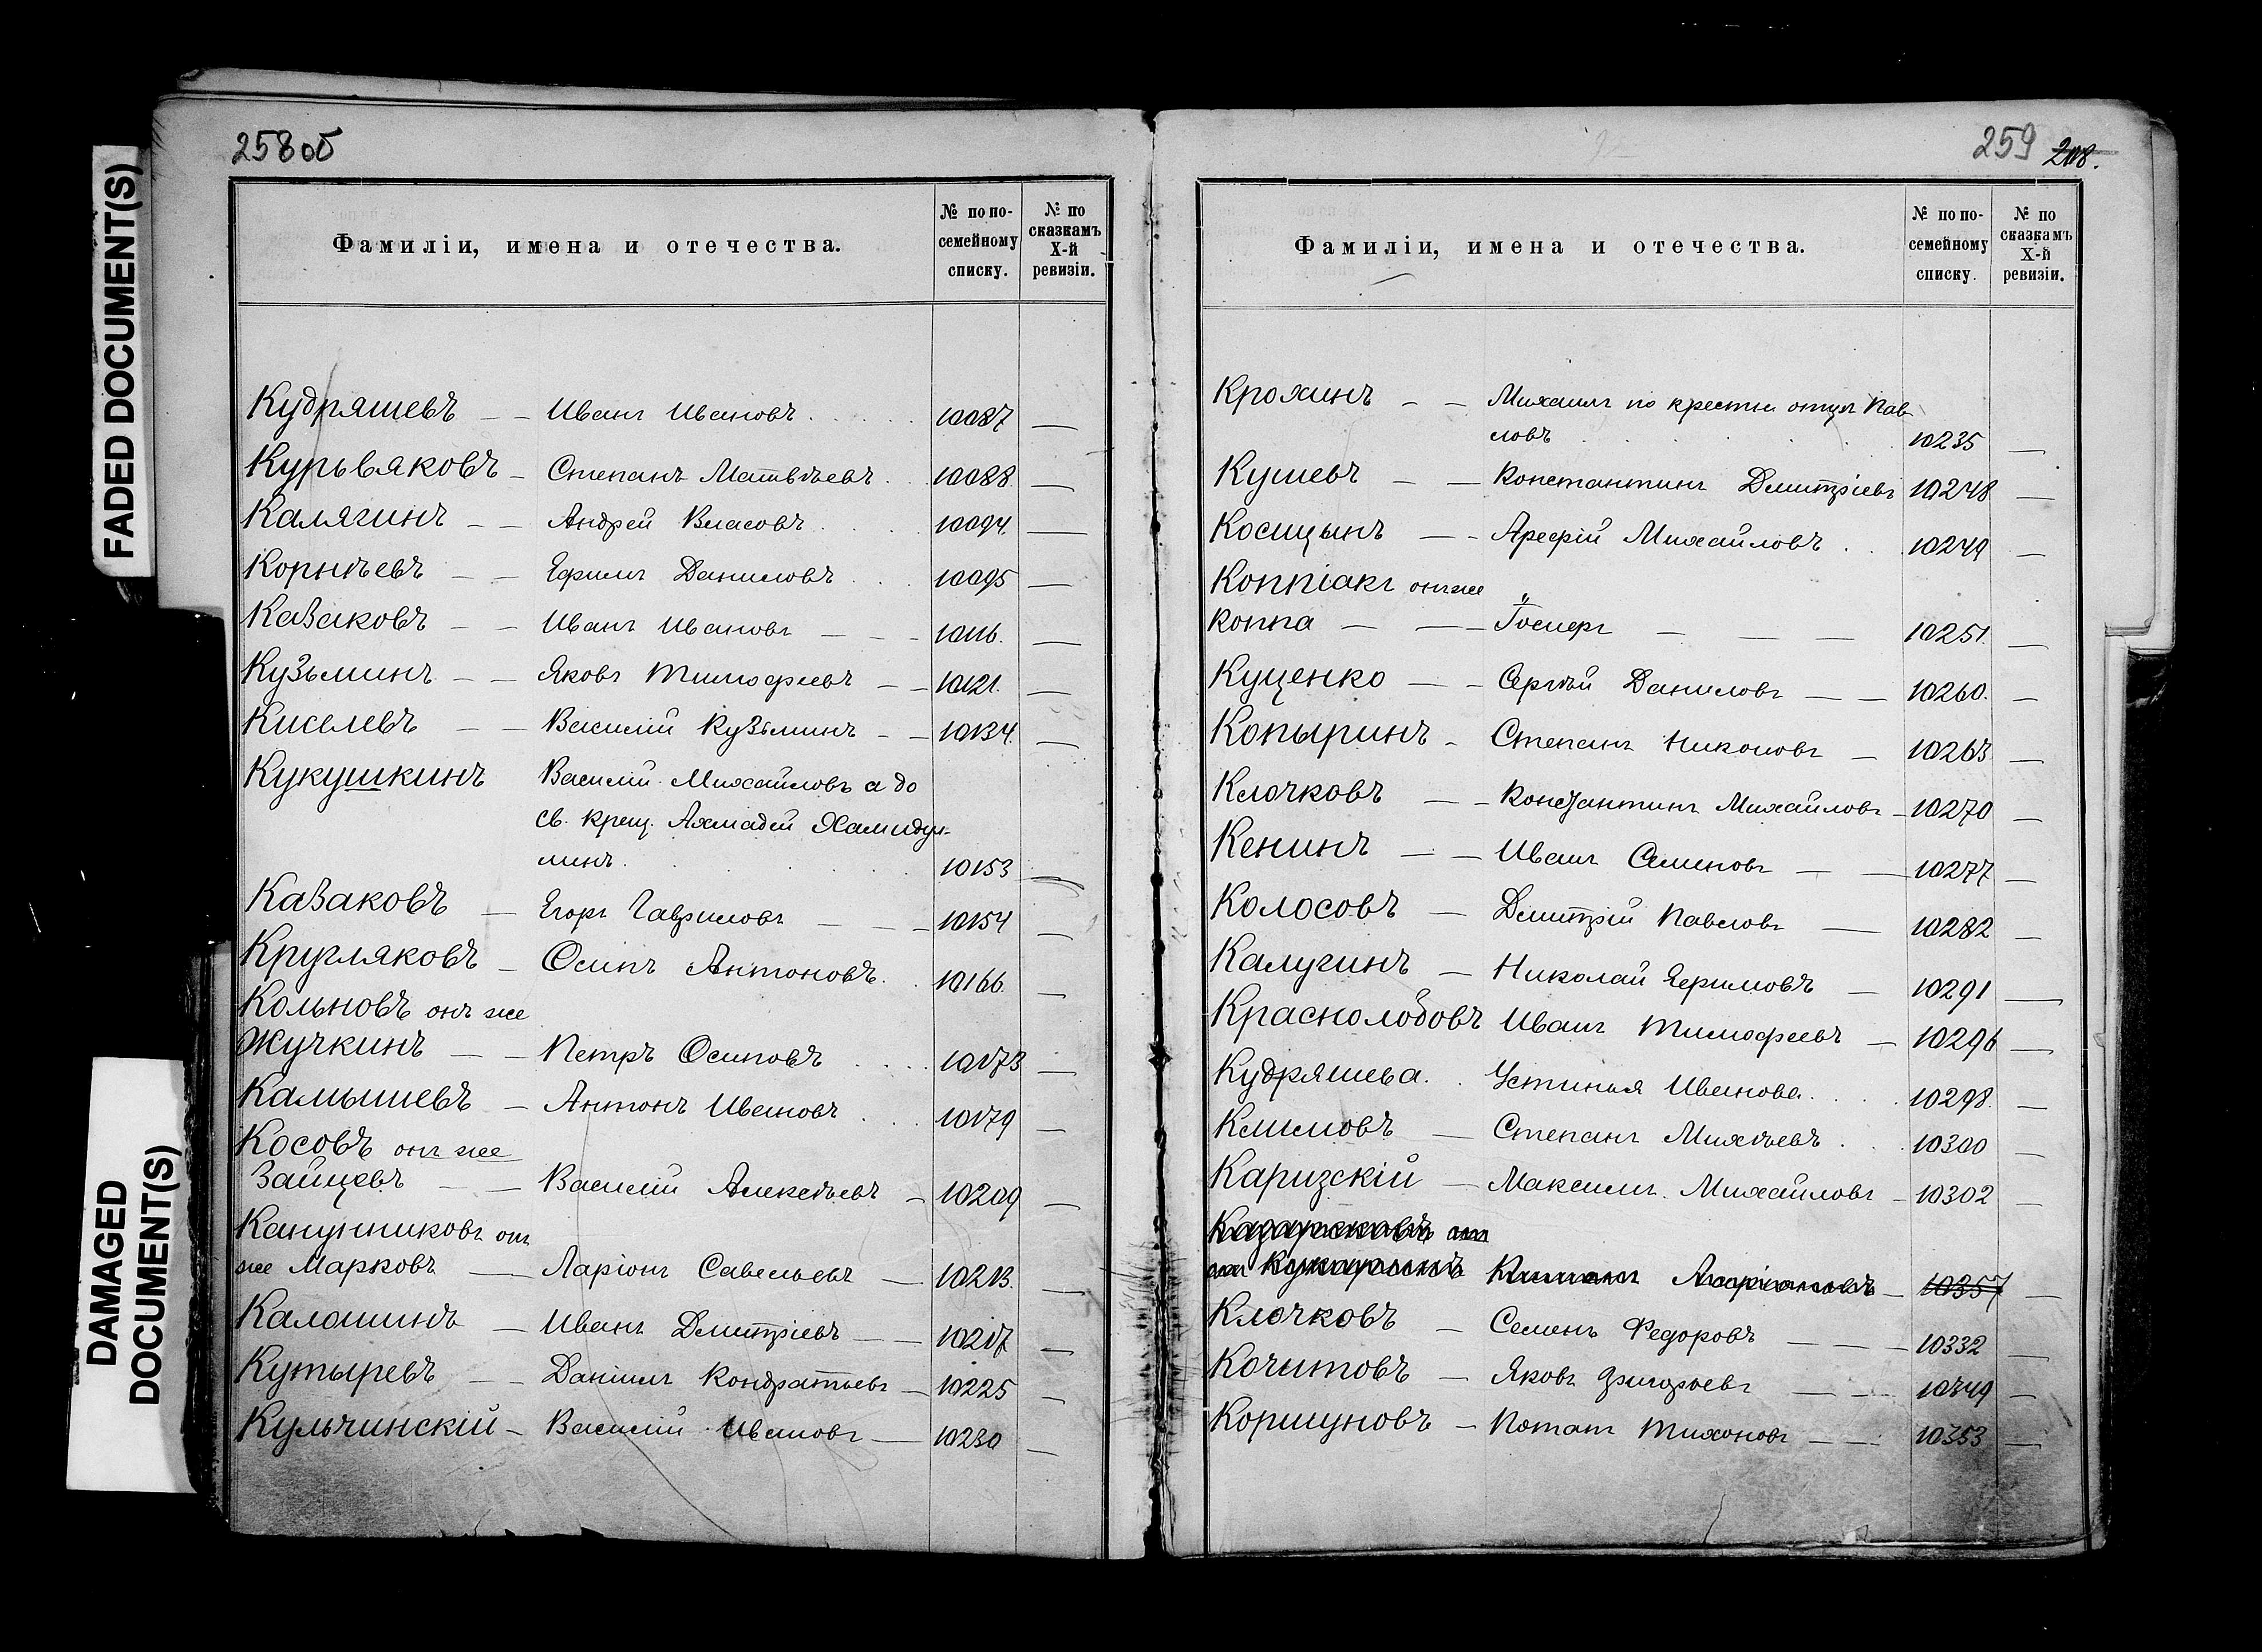 FADED DOCUMENT(S)
DAMAGED
DOCUMENT(S)
258об
Фамиліи, имена и отечества.
№ по по-
семейному
списку.
№ по
сказкамъ
X-й
ревизіи.
Кудряшевъ — — Иванъ Ивановъ . . . . . 10087 —
Курьвяковъ — Степанъ Матвѣевъ . . 10088. —
Калягинъ — — Андрей Власовъ . . . 10094. —
Корнѣевъ — — Ефимъ Даниловъ . . . 10095 —
Казаковъ — — Иванъ Ивановъ — — — 10116. —
Кузьминъ — — Яковъ Тимофеевъ — — 10121. —
Киселевъ — — Василій Кузьминъ — — 10134. —
Кукушкинъ Василій Михайловъ а до
св. крещ. Ахмадей Хамидул-
линъ. . . . . 10153 —
Казаковъ — Егоръ Гавриловъ — — — 10154 —
Кругляковъ — Осипъ Антоновъ. . 10166. —
Кольновъ онъ же
Жучкинъ — — Петръ Осиповъ . . . . 10173 —
Камышевъ — Антонъ Ивановъ . . . 10179 —
Косовъ онъ же
Зайцевъ — — Василій Алексѣевъ — 10209 —
Канунниковъ онъ
же Марковъ — Ларіонъ Савельевъ — 10213. —
Калашинъ — Иванъ Дмитріевъ — — 10217 —
Кутыревъ — — Даніилъ Кондратьевъ — 10225 —
Кульчинскій — Василій Ивановъ — 10230 —
259 208.
Фамиліи, имена и отечества.
№ по по-
семейному
списку.
№ по
сказкамъ
X-й
ревизіи.
Крохинъ — — Михаилъ по крестн. отцу Пав-
ловъ . . . . . 10235 —
Кушевъ — — Константинъ Дмитріевъ 10248 —
Косицынъ — — Арефій Михайловъ . . 10249 —
Коппіакъ онъ же
Коппа — — — Іосифъ — — — 10251. —
Куценко — — Сергѣй Даниловъ — — 10260. —
Копыринъ — Степанъ Никоновъ — 10263. —
Клочковъ — — Константинъ Михайловъ — 10270 —
Кенинъ — — Иванъ Семеновъ — — 10277 —
Колосовъ — Дмитрій Павловъ — 10282 —
Калугинъ — Николай Ефимовъ — 10291 —
Краснолобовъ Иванъ Тимофеевъ — 10296 —
Кудряшева . . Устинья Иванова . . . . 10298. —
Климовъ — Степанъ Михѣевъ . . . 10300 —
Каризскій — Максимъ Михайловъ — 10302 —
10357 —
Клочковъ — Семенъ Федоровъ — — — 10332 —
Кочитовъ — Яковъ Григорьевъ — — — 10349 —
Коршуновъ — Потапъ Тихоновъ — — 10353 —